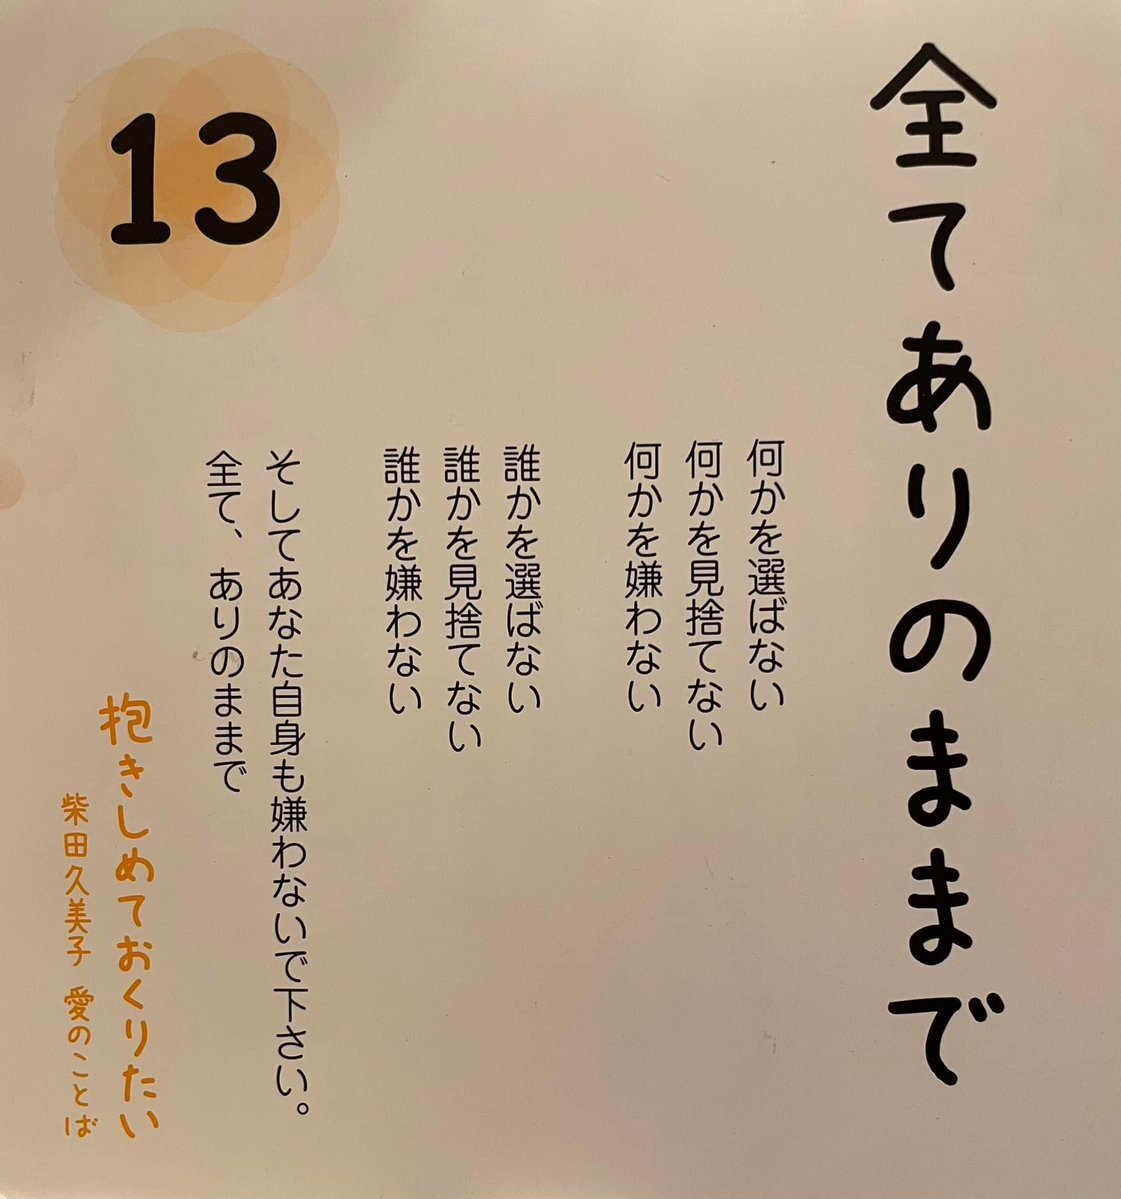 全てありのままで
何かを選ばない
何かを見捨てない
何かを嫌わない
誰かを選ばない
誰かを見捨てない
誰かを嫌わない
そしてあなた自身も嫌わないで下さい。
全て、ありのままで
13
抱きしめておくりたい
柴田久美子 愛のことば